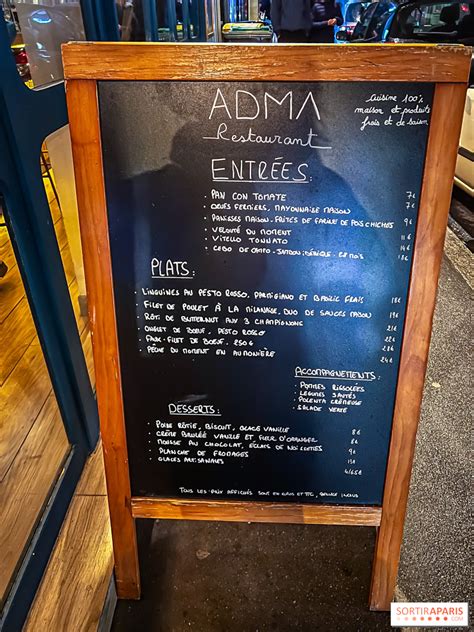 ADMA
Restaurant
Cuisine 100%
maison et produits
frais et de saison
ENTRÉES:
. PAN CON TOMATE 7€
. OEUFS FERMIERS, MAYONNAISE MAISON
. PANISSES MAISON. FRITES DE FARINE DE POIS CHICHES 9€
. VELOUTÉ DU MOMENT
. VITELLO TONNATO 14€
PLATS:
. LINGUINES AU PESTO ROSSO, PARMIGIANO ET BASILIC FRAIS 18€
. FILET DE POULET À LA MILANAISE, DUO DE SAUCES MAISON
. RÔTI DE BUTTERNUT AUX 3 CHAMPIGNONS
. ONGLET DE BOEUF, PESTO ROSSO
. FAUX-FILET DE BOEUF. 250G
. PÊCHE DU MOMENT EN AUMONIÈRE 24€
ACCOMPAGNEMENTS:
. POMMES RISSOLÉES
. LÉGUMES SAUTÉS
. POLENTA CRÉMEUSE
. SALADE VERTE
DESSERTS:
. POIRE RÔTIE, BISCUIT, GLACE VANILLE 8€
. CRÈME BRULÉE VANILLE ET FLEUR D'ORANGER 8€
. MOUSSE AU CHOCOLAT, ÉCLATS DE NOISETTES
. PLANCHE DE FROMAGES
. GLACES ARTISANALES 4/6.5€
TOUS LES PRIX AFFICHÉS SONT EN EUROS ET TTC, SERVICE INCLUS
SORTIRAPARIS
.COM